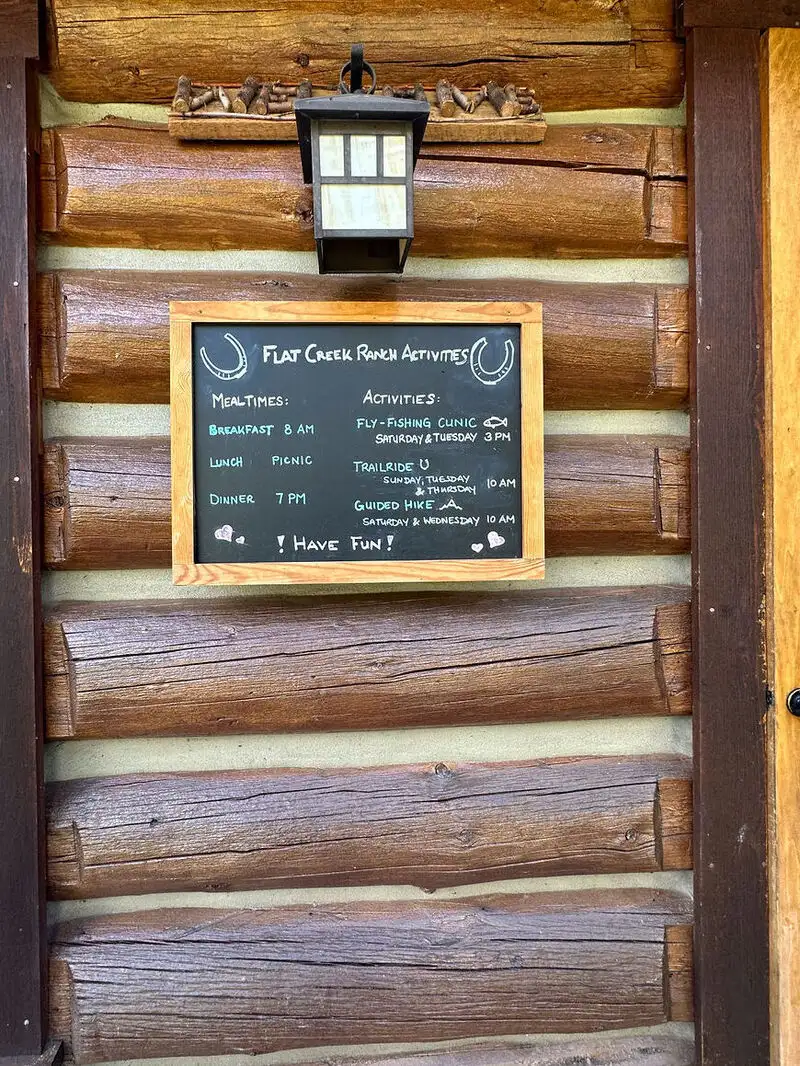 Flat Creek Ranch Activities
Mealtimes:
Breakfast 8 AM
Lunch Picnic
Dinner 7 PM
Activities:
Fly-Fishing Clinic
Saturday & Tuesday 3 PM
Trailride
Sunday, Tuesday
& Thursday 10 AM
Guided Hike
Saturday & Wednesday 10 AM
! Have Fun!